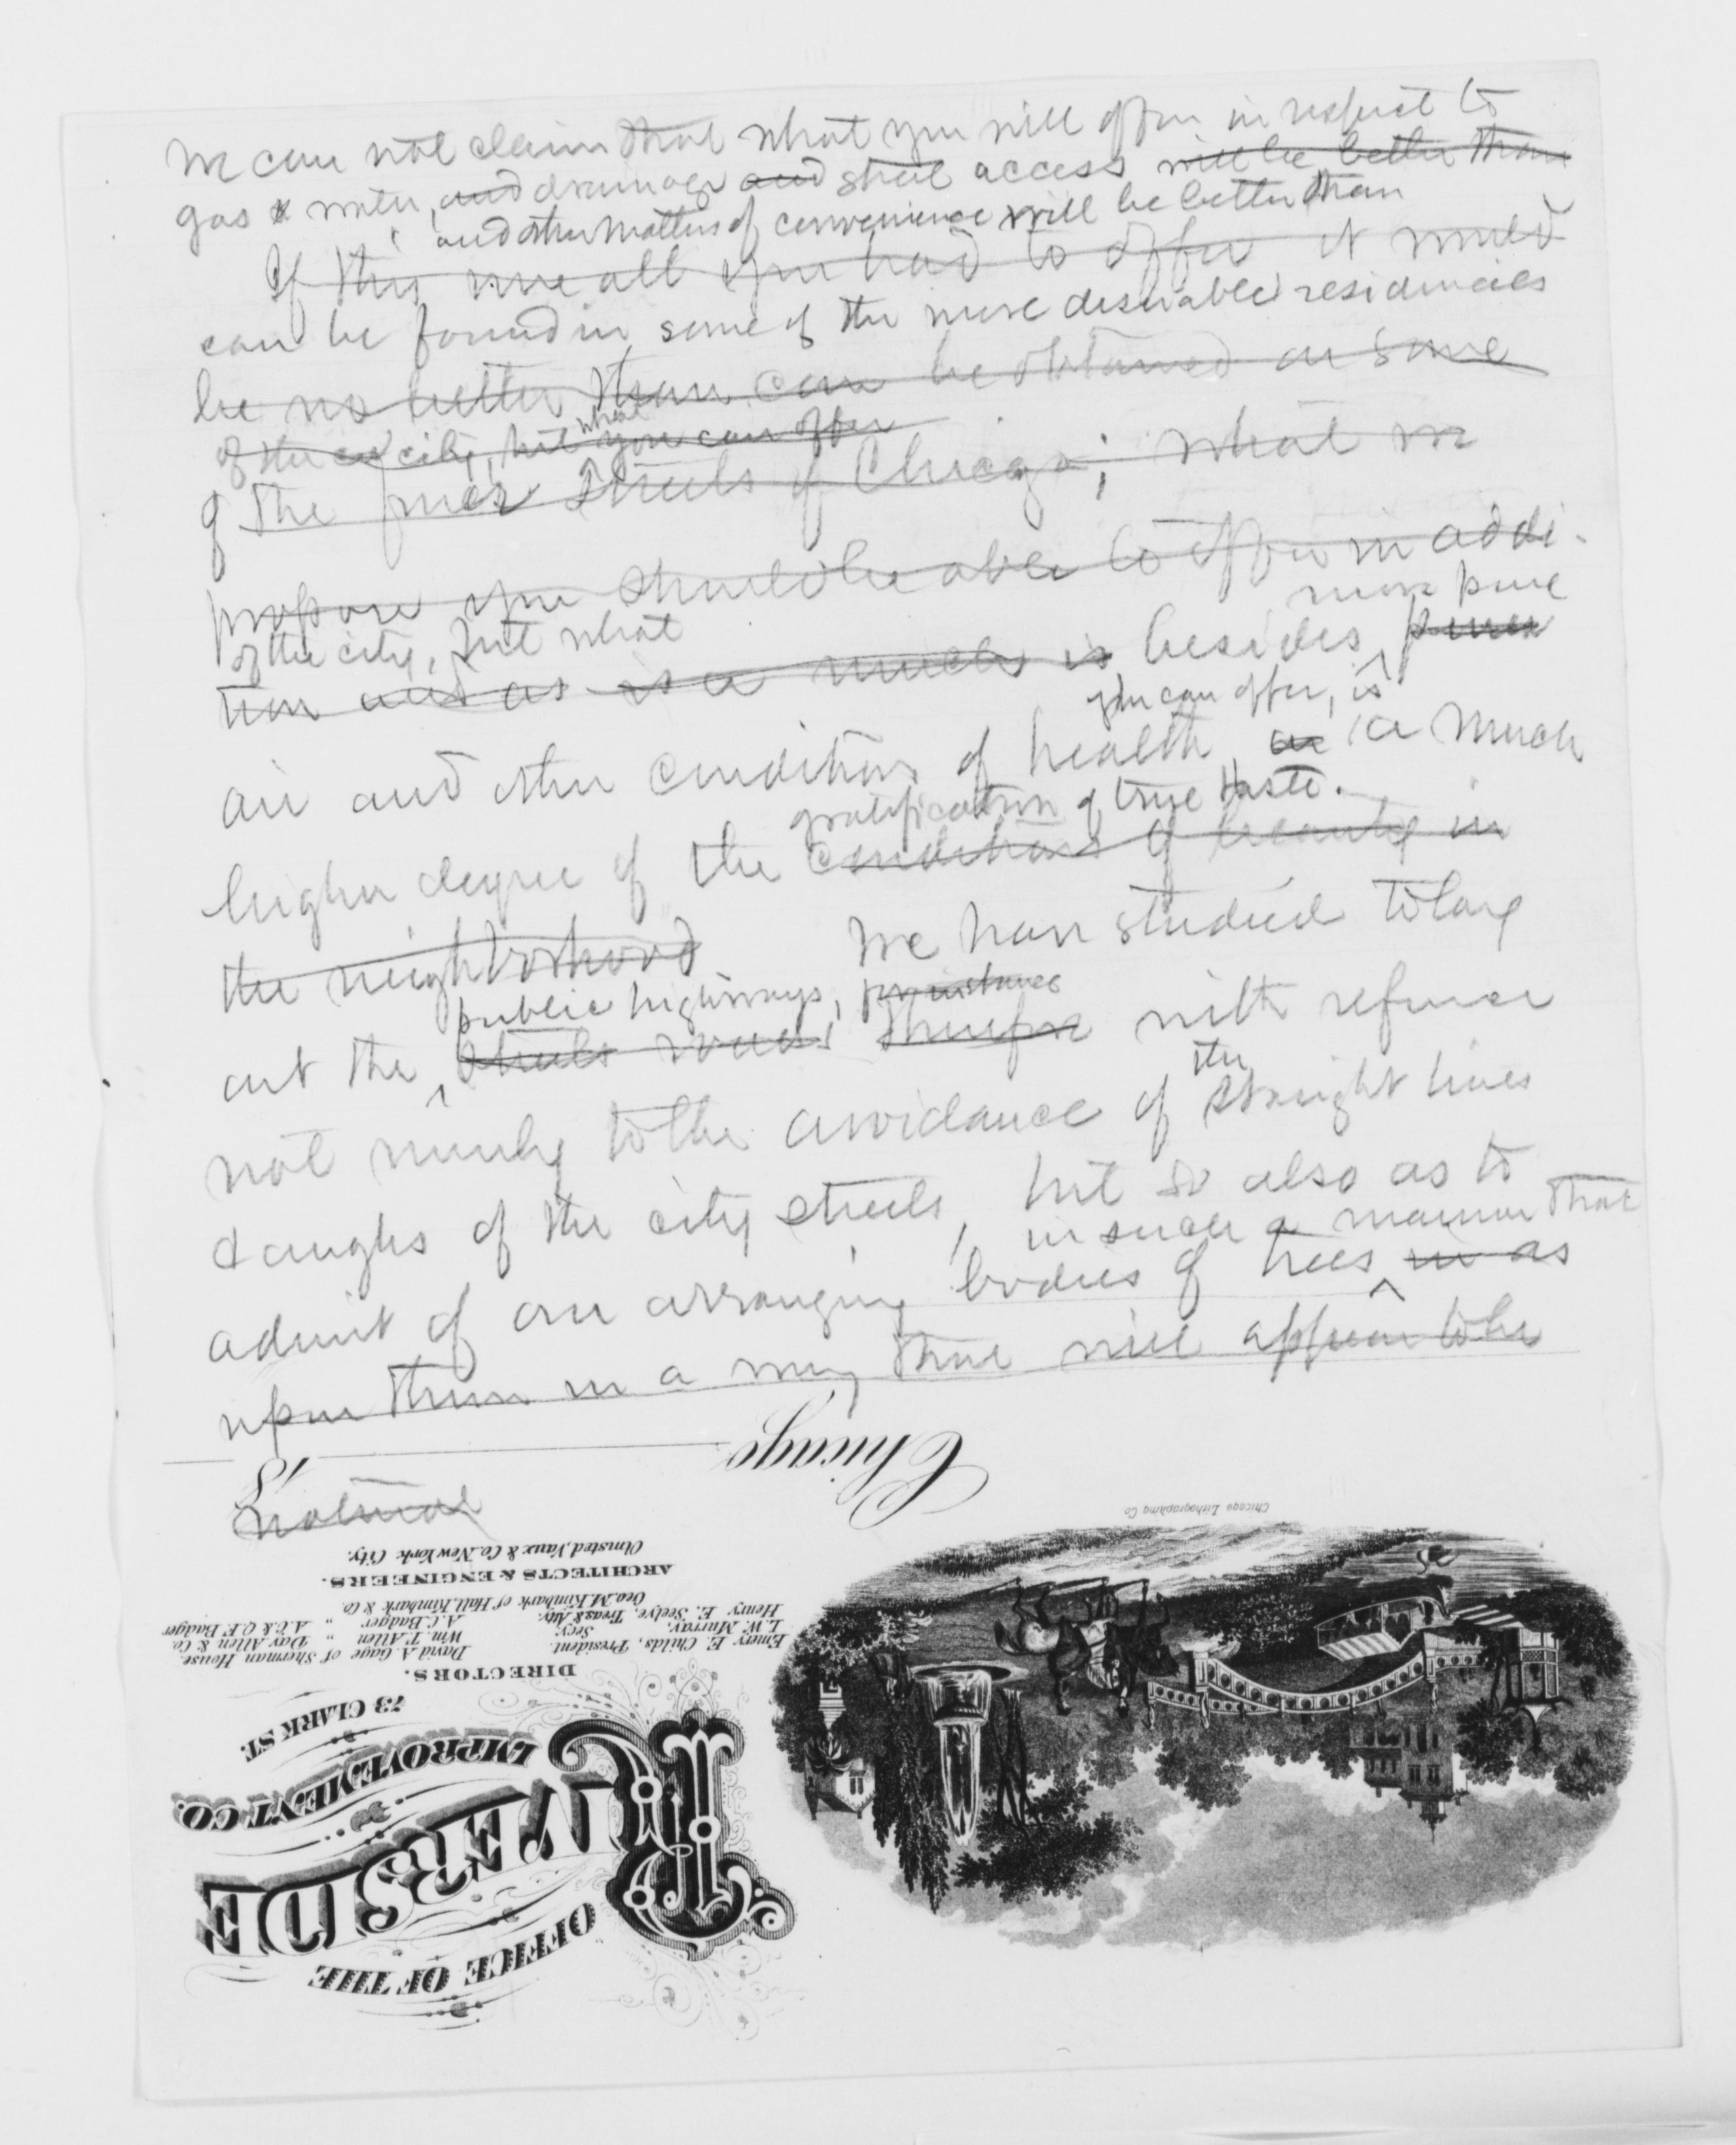 We can not claim that what you will offer in respect to
gas & water, and drainage and street access will be better than
and other matters of convenience will be better than
If this were all you had to offer it would
can be found in some of the more desirable residencies
be no better than can be obtained on some
of the city, but what you can offer
of the finer streets of Chicago; what we
propose you should be able to offer in addi-
of the city, but what
more pure
tion and as is a much is besides purer
you can offer, is
air and other conditions of health a much
gratification of true taste.
higher degree of the conditions of beauty in
the neighborhood We have studied to lay
public highways, for instance
out the streets roads therefore with reference
not merely to the avoidance of the straight lines
& angles of the city streets, but so also as to
in such a manner that
admit of an arranging bodies of trees in as
upon them in a way that will appear to be
natural
Chicago 18
Chicago Lithographing Co
Olmsted, Vaux & Co. New York City.
ARCHITECTS & ENGINEERS.
Geo. M. Kimbark of Hall, Kimbark & Co.
Henry E. Seelye, Treas & Atty. A.C. Badger " A.C. & O.F. Badger
L.W. Murray, Secy. Wm. T. Allen " Day Allen & Co.
Emery E. Childs, President. David A. Gage of Sherman House.
DIRECTORS.
73 CLARK ST.
IMPROVEMENT CO.
RIVERSIDE
OFFICE OF THE